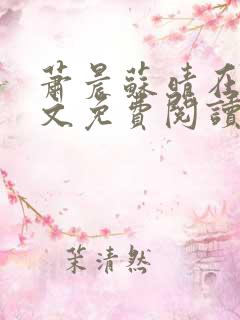 蕭晨蘇晴在
文免費閱讀
茉清然